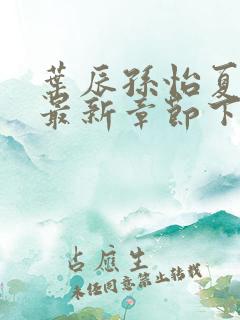 葉辰孫怡夏
最新章節下
占應生
未经同意禁止转载